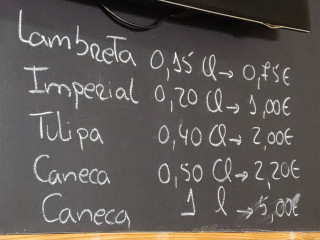 Lambreta 0,15 Cl → 0,75€
Imperial 0,20 Cl → 1,00€
Tulipa 0,40 Cl → 2,00€
Caneca 0,50 Cl → 2,20€
Caneca 1 l → 5,00€